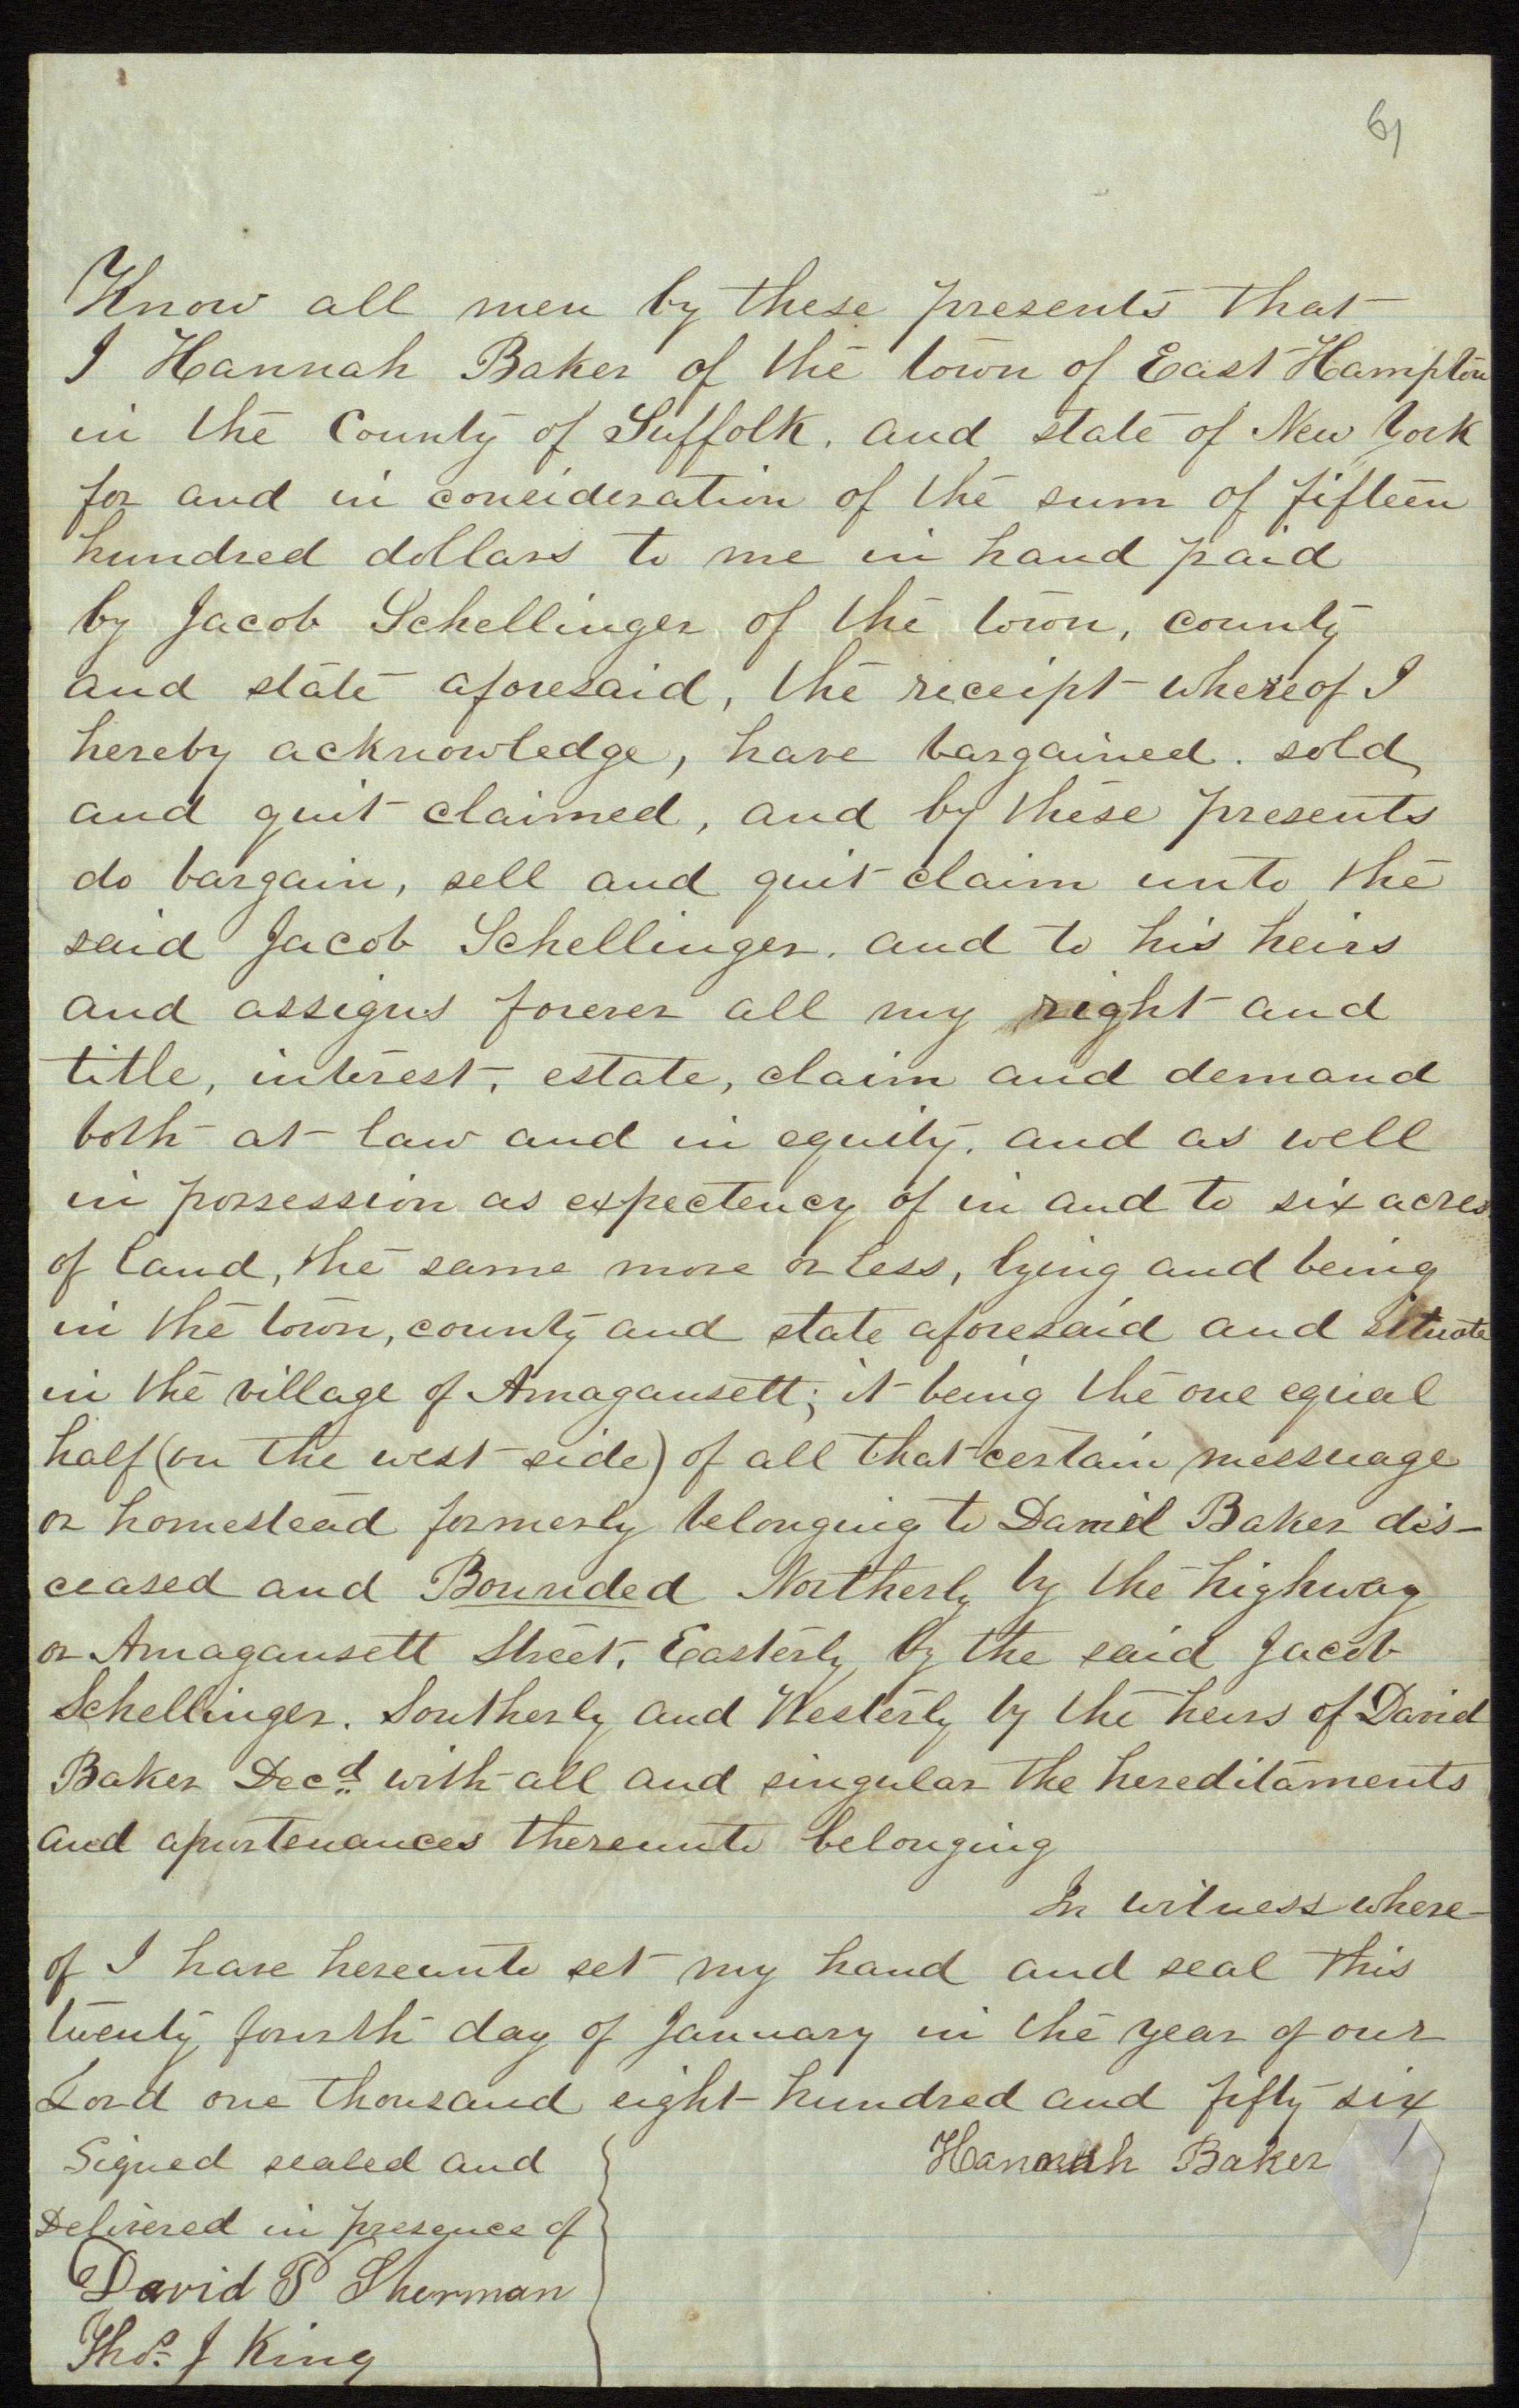 61
Know all men by these presents that
I Hannah Baker of the town of East Hampton
in the County of Suffolk, and state of New York
for and in concideration of the sum of fifteen
hundred dollars to me in hand paid
by Jacob Schellinger of the town, county
and state aforesaid, the receipt whereof I
hereby acknowledge, have bargained. sold
and quit claimed, and by these presents
do bargain, sell and quit claim unto the
said Jacob Schellinger. and to his heirs
and assigns forever all my right and
title, interest, estate, claim and demand
both at law and in equity, and as well
in possession as expectency of in and to six acres
of land, the same more or less, lying and being
in the town, county and state aforesaid and situate
in the village of Amagansett; it being the one equal
half (on the west side) of all that certain messuage
or homestead formerly belonging to Daniel Baker dis-
ceased and Bounded Northerly by the highway
or Amagansett Street, Easterly by the said Jacob
Schellinger. Southerly and Westerly by the heirs of David
Baker Decd with all and singular the hereditaments
and apurtenances thereunto belonging
In witness where-
of I have hereunto set my hand and seal this
twenty fourth day of January in the year of our
Lord one thousand eight hundred and fifty six
Signed sealed and Hannah Baker
Delivered in presence of
David P Sherman
Thos. J King